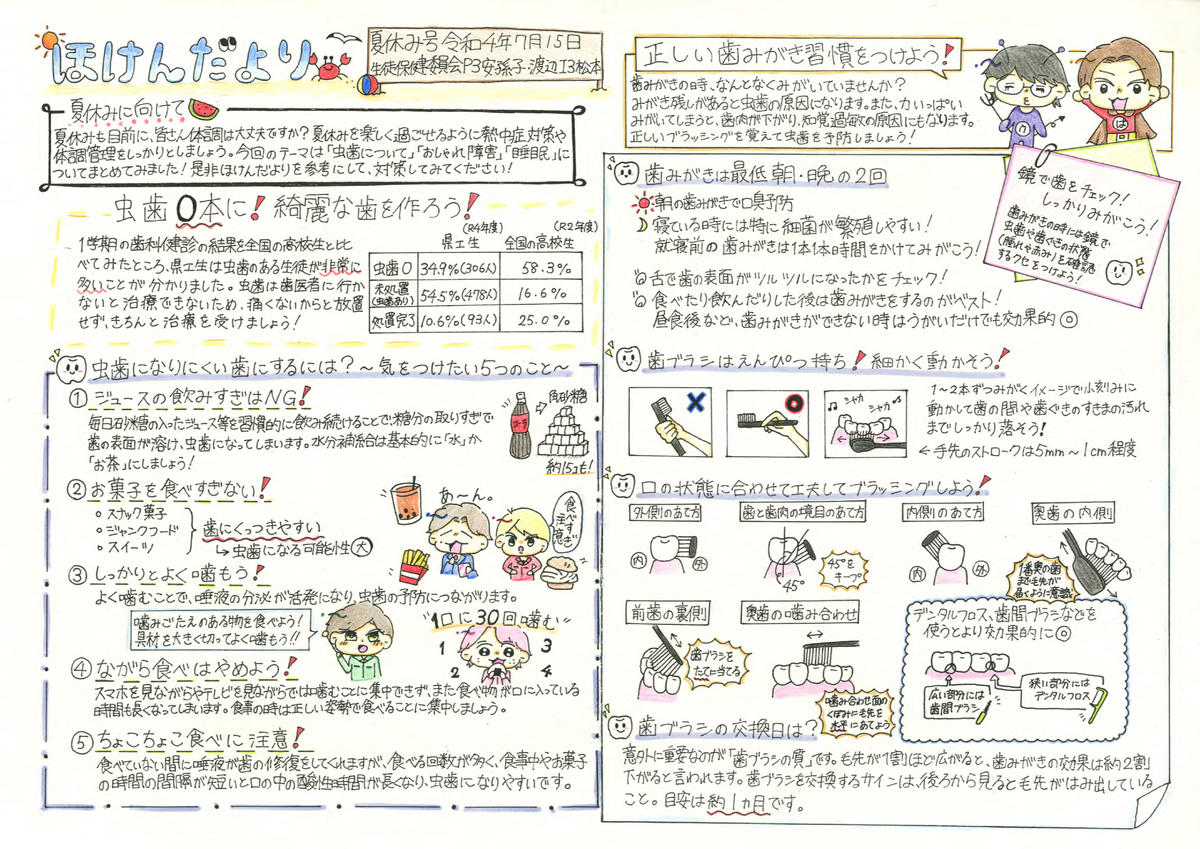 ほけんだより
夏休み号 令和4年7月15日
生徒保健委員会P3安孫子・渡辺I3松本
夏休みに向けて
夏休みも目前に、皆さん体調は大丈夫ですか？夏休みを楽しく過ごせるように熱中症対策や
体調管理をしっかりとしましょう。今回のテーマは「虫歯について」「おしゃれ障害」「睡眠」に
ついてまとめてみました！是非ほけんだよりを参考にして、対策してみてください！
虫歯0本に！綺麗な歯を作ろう！
1学期の歯科健診の結果を全国の高校生と比
べてみたところ、県工生は虫歯のある生徒が非常に
多いことが分かりました。虫歯は歯医者に行か
ないと治療できないため、痛くないからと放置
せず、きちんと治療を受けましょう！
(R4年度) (R2年度)
県工生 全国の高校生
虫歯0 34.9%(306人) 58.3%
未処置(虫歯あり) 54.5%(478人) 16.6%
処置完了 10.6%(93人) 25.0%
虫歯になりにくい歯にするには？～気をつけたい5つのこと～
① ジュースの飲みすぎはNG！
毎日砂糖の入ったジュース等を習慣的に飲み続けることで、糖分の取りすぎで
歯の表面が溶け、虫歯になってしまいます。水分補給は基本的に「水」か
「お茶」にしましょう！
コーラ
角砂糖
約15コも！
② お菓子を食べすぎない！
○ スナック菓子
○ ジャンクフード
○ スイーツ
歯にくっつきやすい
→虫歯になる可能性大
あ～ん。
食べすぎ注意！
③ しっかりとよく噛もう！
よく噛むことで、唾液の分泌が活発になり、虫歯の予防につながります。
噛みごたえのある物を食べよう！
具材を大きく切ってよく噛もう！！
"1口に30回噛む"
1 3
2 4
④ ながら食べはやめよう！
スマホを見ながらやテレビを見ながらでは噛むことに集中できず、また食べ物が口に入っている
時間も長くなってしまいます。食事の時は正しい姿勢で食べることに集中しましょう。
⑤ ちょこちょこ食べに注意！
食べていない間に唾液が歯の修復をしてくれますが、食べる回数が多く、食事中やお菓子
の時間の間隔が短いと口の中の酸性時間が長くなり、虫歯になりやすいです。
正しい歯みがき習慣をつけよう！
歯みがきの時、なんとなくみがいていませんか？
みがき残しがあると虫歯の原因になります。また、力いっぱい
みがいてしまうと、歯肉が下がり、知覚過敏の原因にもなります。
正しいブラッシングを覚えて虫歯を予防しましょう！
は
鏡で歯をチェック！
しっかりみがこう！
歯みがきの時には鏡で
虫歯や歯ぐきの状態
(腫れや赤み)を確認
するクセをつけよう！
歯みがきは最低 朝・晩の2回
朝の歯みがきで口臭予防
寝ている時には特に細菌が繁殖しやすい！
就寝前の歯みがきは1本1本時間をかけてみがこう！
舌で歯の表面がツルツルになったかをチェック！
食べたり飲んだりした後は歯みがきをするのがベスト！
昼食後など、歯みがきができない時はうがいだけでも効果的◎
歯ブラシはえんぴつ持ち！細かく動かそう！
シャカ シャカ
1～2本ずつみがくイメージで小刻みに
動かして歯の間や歯ぐきのすきまの汚れ
までしっかり落そう！
←手先のストロークは5mm～1cm程度
口の状態に合わせて工夫してブラッシングしよう！
外側のあて方
内 外
歯と歯肉の境目のあて方
45°
45°をキープ
内側のあて方
内 外
奥歯の内側
1番奥の歯
まで毛先が
届くように意識
前歯の裏側
歯ブラシを
たてに当てる
奥歯の噛み合わせ
噛み合わせ面の
くぼみに毛先を
水平にあてよう
デンタルフロス、歯間ブラシなどを
使うとより効果的に◎
広い部分には
歯間ブラシ
狭い部分には
デンタルフロス
歯ブラシの交換日は？
意外に重要なのが「歯ブラシの質」です。毛先が1割ほど広がると、歯みがきの効果は約2割
下がると言われます。歯ブラシを交換するサインは、後ろから見ると毛先がはみ出している
こと。目安は約1ヵ月です。